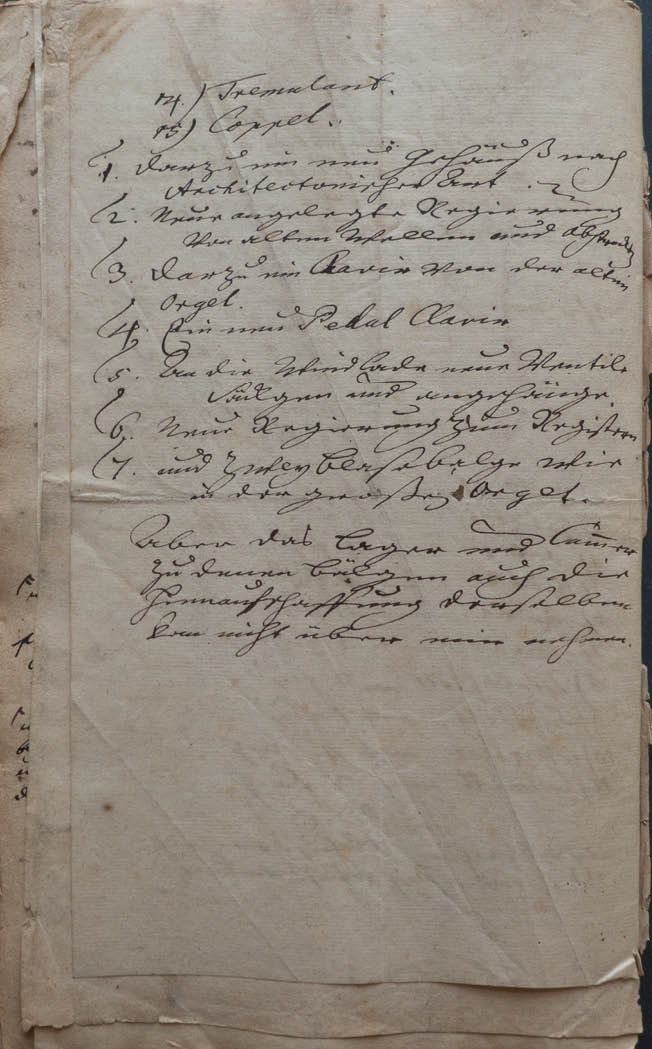 14.) Tremulant.
15) Coppel.
1. darzu ein neu Gehäuß nach
Architectonischer Art.
2. Neue angelegte Regierung
von alten Wellen und
3. darzu ein Clavir von der alten
Orgel.
4. Ein neu Pedal Clavir
5. An die Windlade neue Ventile
und angehänge.
6. Neue Regierung zum Registern
7. und zwey blasebälge wie
in der großen Orgel.
Aber das Lager und
zu denen bälgen auch die
hinaufschaffung derselben
kan nicht über mein nehmen.